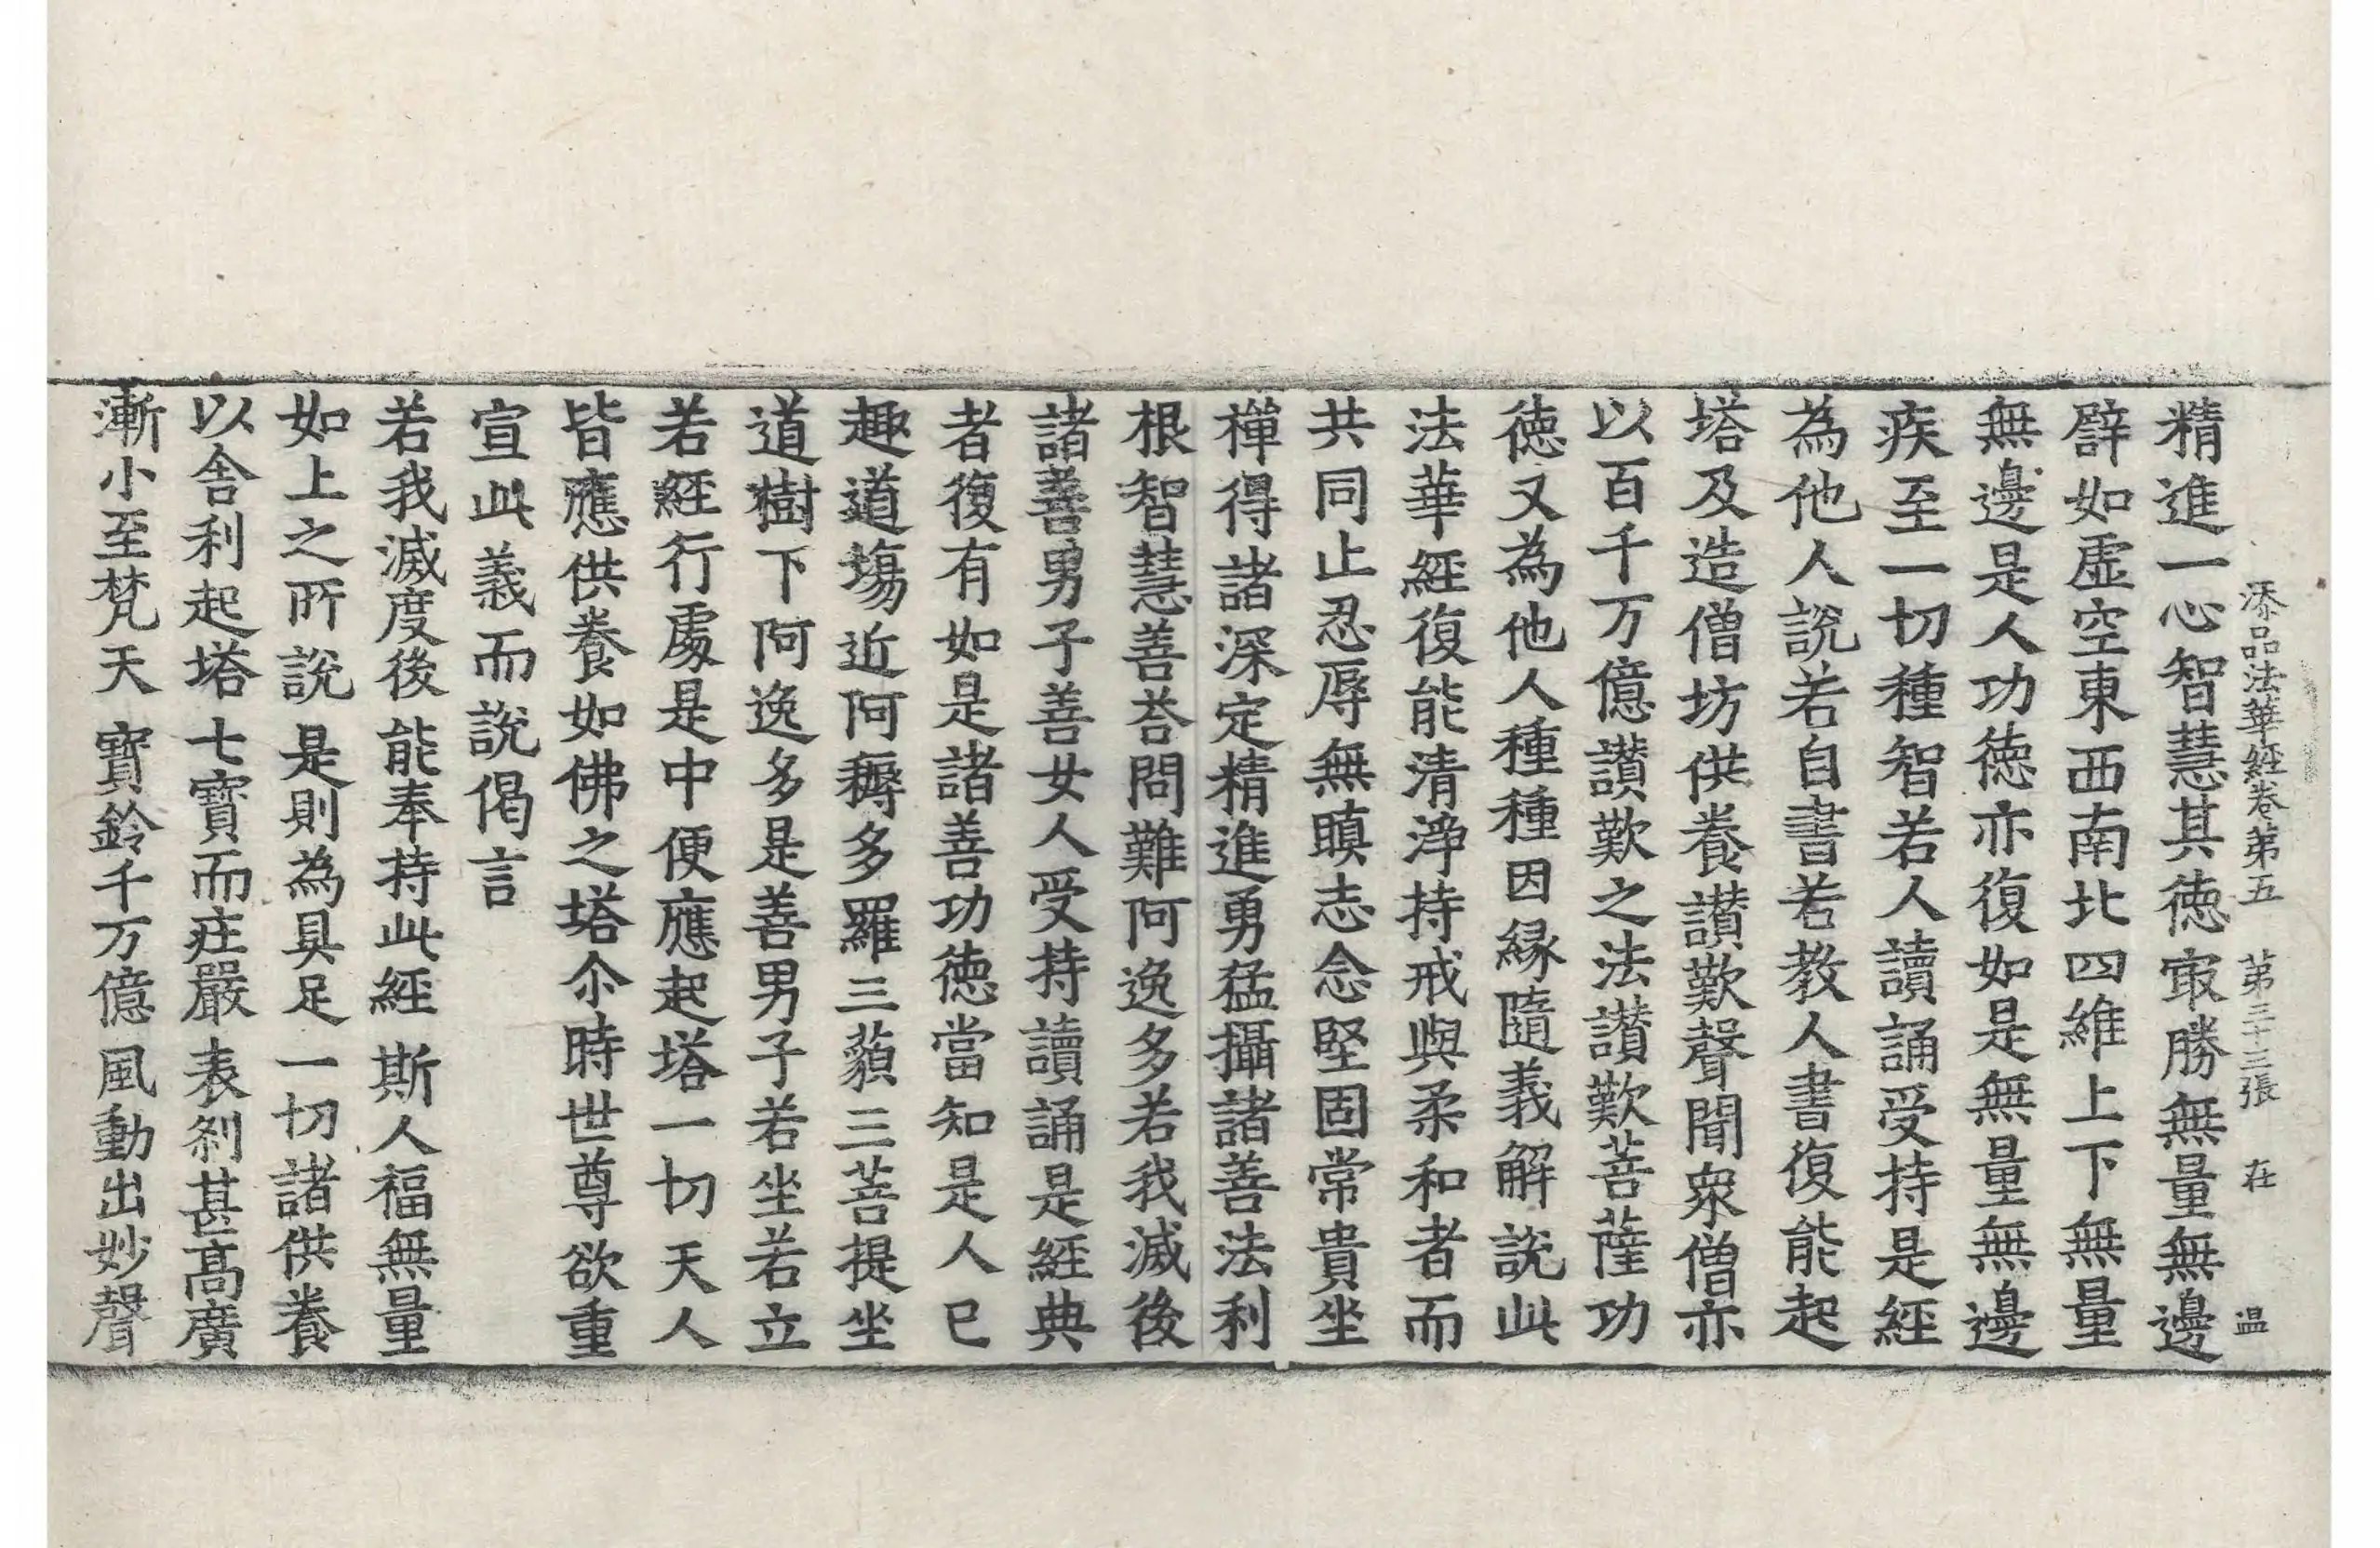 添品法華經卷第五　第三十三張　在　温
精進一心智慧其德㝡勝無量無邊
辟如虛空東西南北四維上下無量
無邊是人功德亦復如是無量無邊
疾至一切種智若人讀誦受持是經
為他人說若自書若教人書復能起
塔及造僧坊供養讃歎聲聞衆僧亦
以百千万億讃歎之法讃歎菩薩功
德又為他人種種因縁隨義解說此
法華經復能清淨持戒與柔和者而
共同止忍辱無瞋志念堅固常貴坐
禪得諸深定精進勇猛攝諸善法利
根智慧善荅問難阿逸多若我滅後
諸善男子善女人受持讀誦是經典
者復有如是諸善功德當知是人已
趣道場近阿耨多羅三藐三菩提坐
道樹下阿逸多是善男子若坐若立
若經行處是中便應起塔一切天人
皆應供養如佛之塔尒時世尊欲重
宣此義而說偈言
若我滅度後　能奉持此經　斯人福無量
如上之所說　是則為具足　一切諸供養
以舍利起塔　七寶而莊嚴　表刹甚高廣
漸小至梵天　寶鈴千万億　風動出妙聲